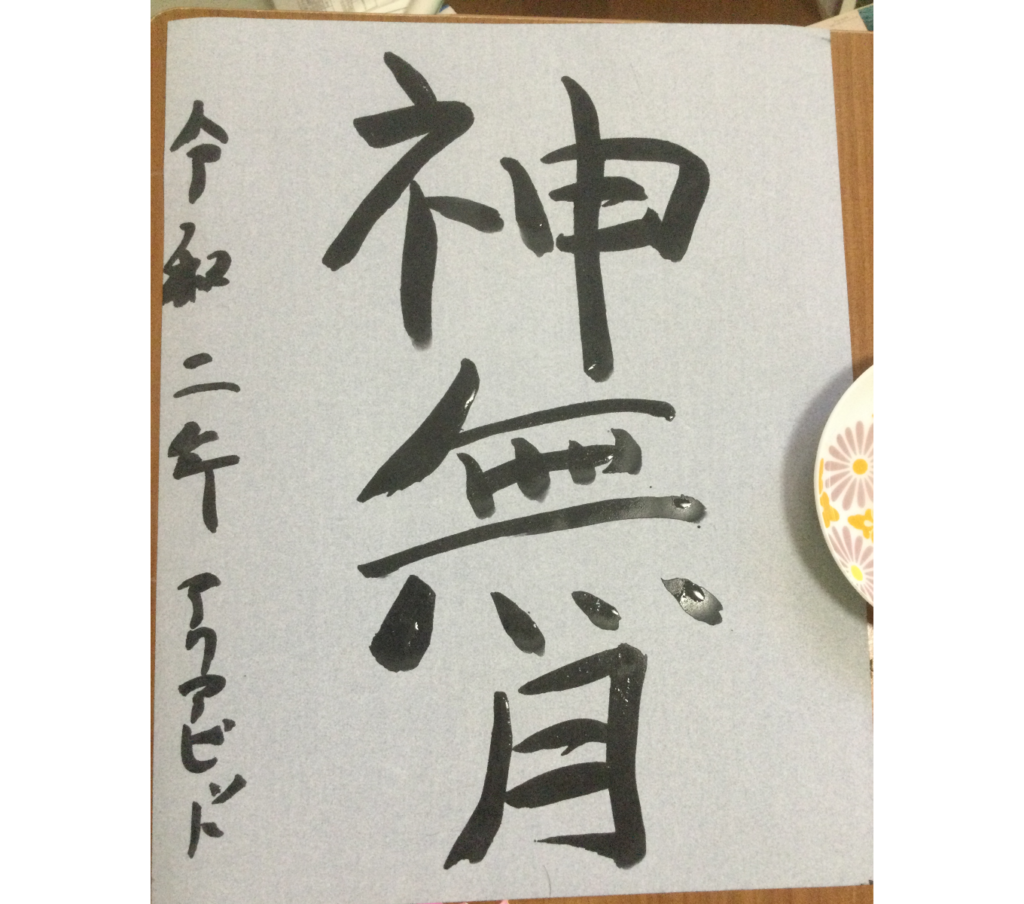 神無月
令和二年 アクアビット